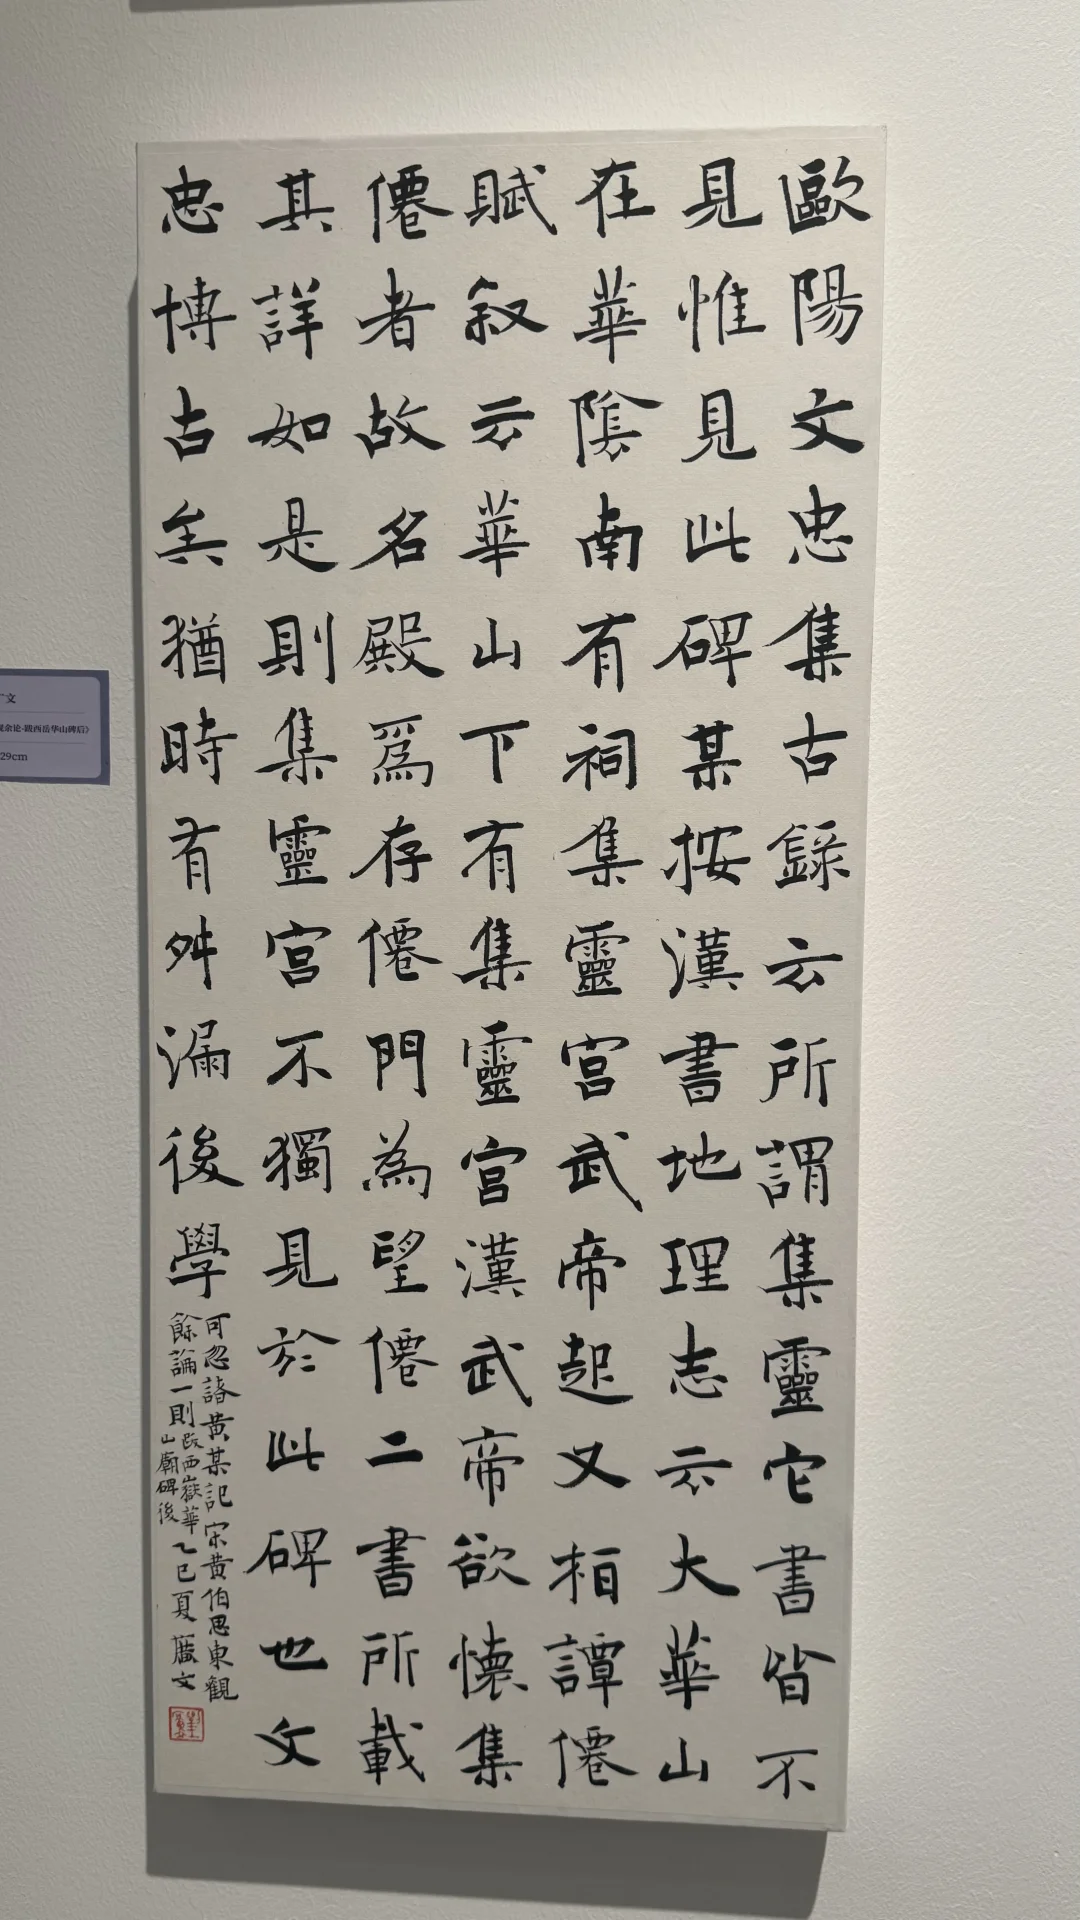 歐陽文忠集古錄云所謂集靈它書皆不
見惟見此碑某按漢書地理志云大華山
在華陰南有祠集靈宮武帝起又桓譚僊
賦叙云華山下有集靈宮漢武帝欲懷集
僊者故名殿爲存僊門為望僊二書所載
其詳如是則集靈宮不獨見於此碑也文
忠博古矣猶時有舛漏後學
可忽諸黄某記宋黄伯思東觀
餘論一則跋西嶽華山廟碑後乙巳夏廣文
广文
观余论·跋西岳华山碑后》
29cm